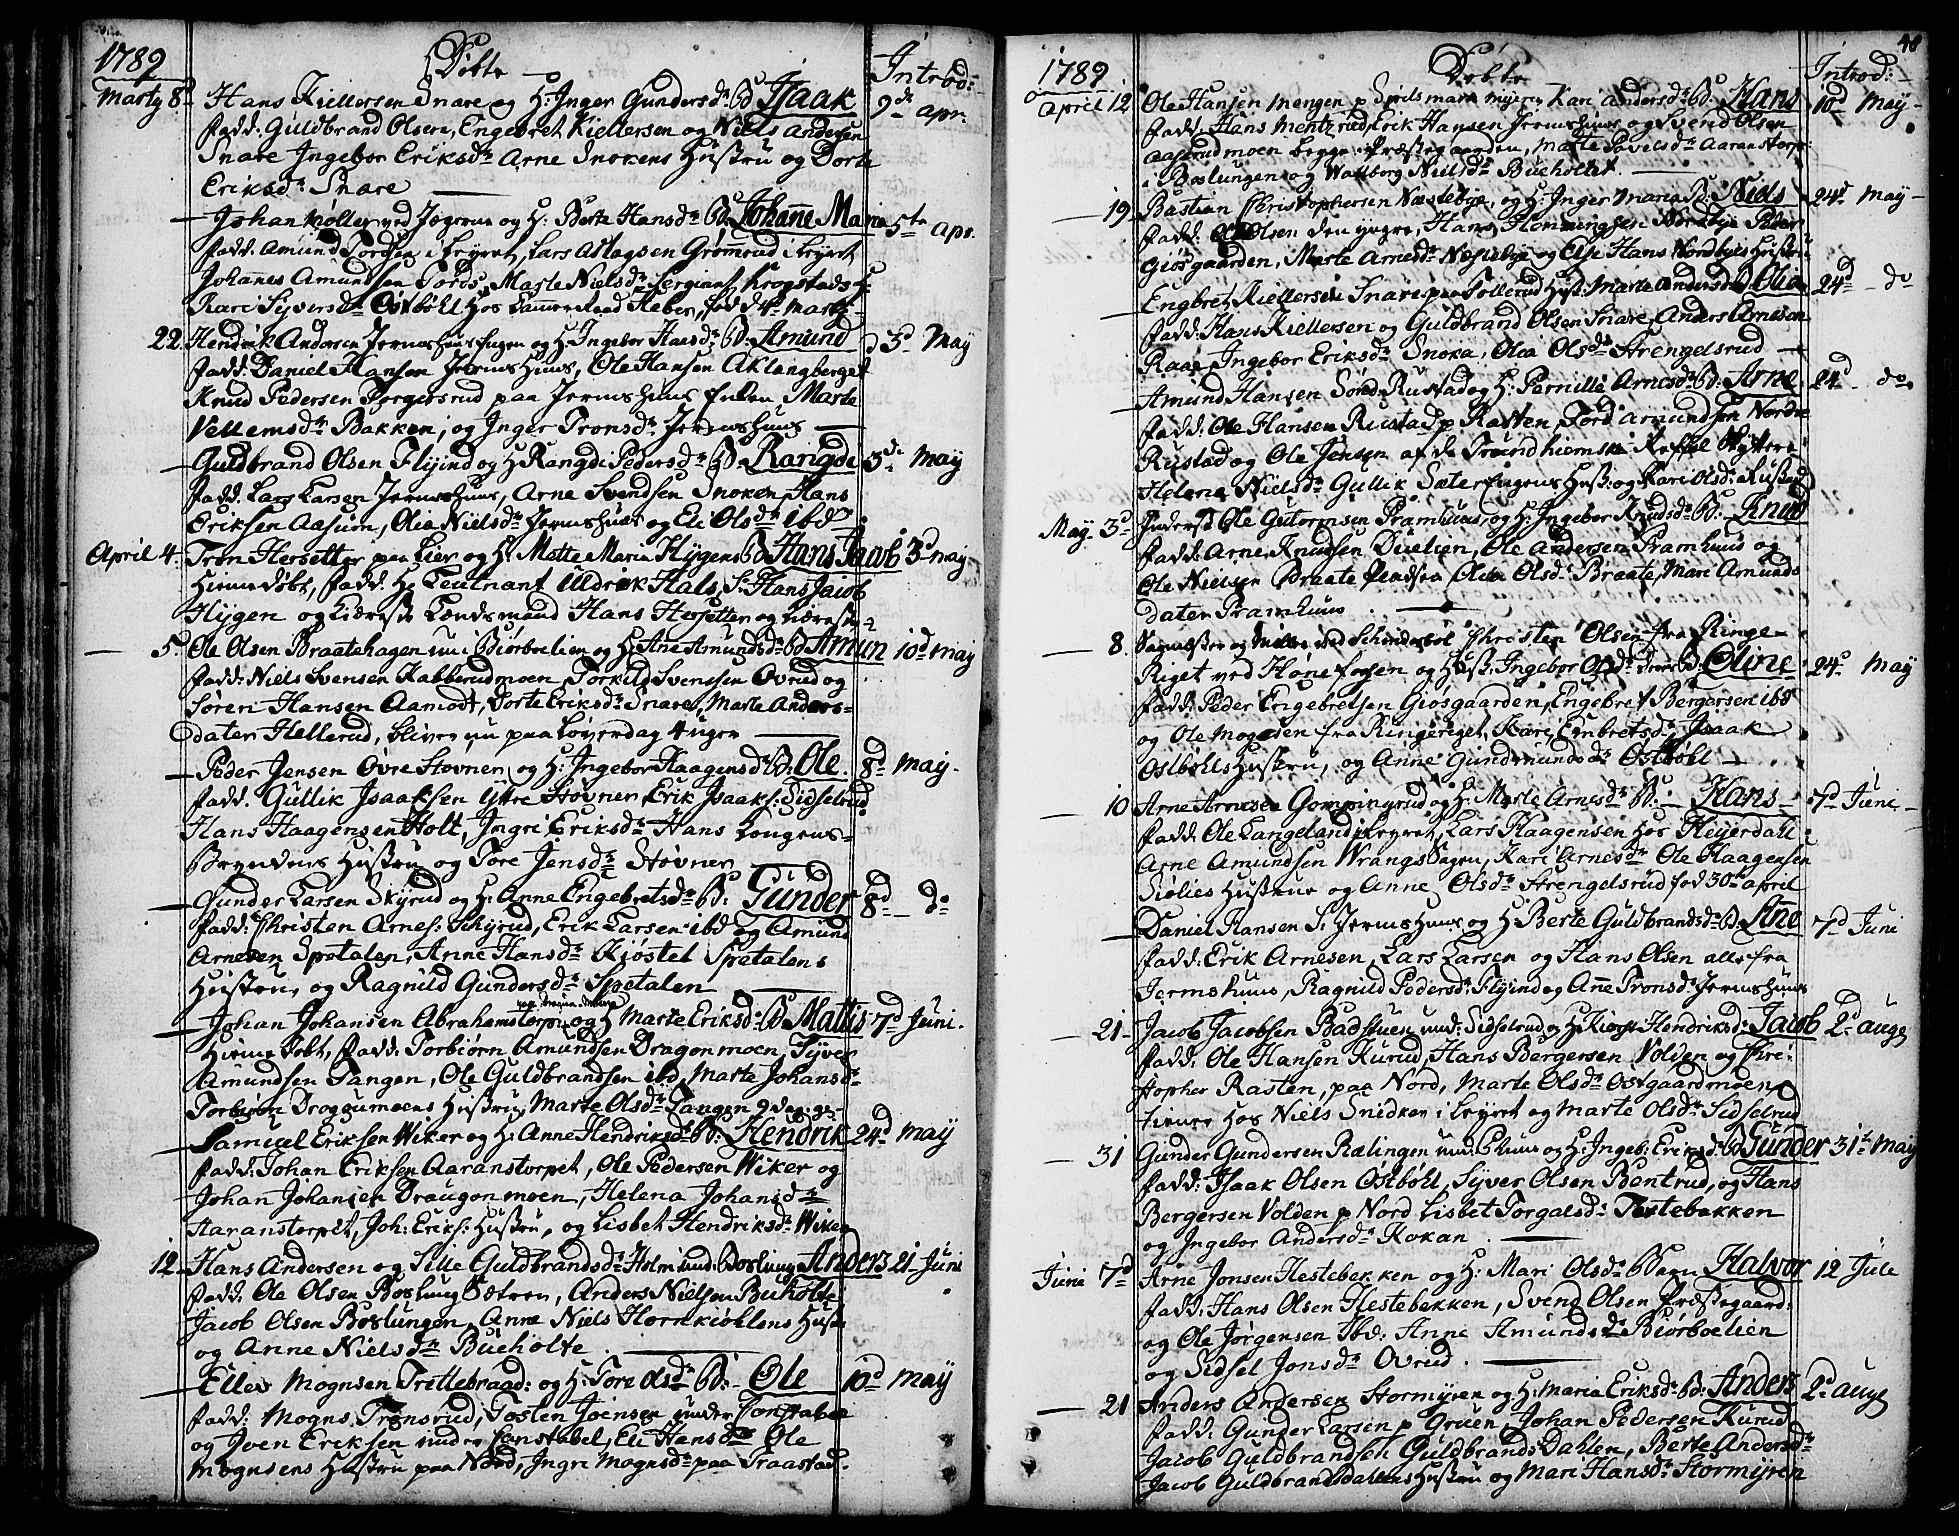 1789 Döbte Introd:
Marty 8d Hans Kiellersen Snare og H: Inger Gundersdr Bd Isaak 9de apr.
fadd: Guldbrand Olsen, Engebret Kiellersen og Niels Andersen
Snare Ingebor Eriksdr Arne Snokens Hustru og Dorte
Eriksdr Snare
Johan Møller ved og H: Berte Hansdr Bd: Johanne Maria 5te apr.
fadd: Amund Tordsen i Leyret, Lars Aslagsen Grömsrud i Leyret
Johannes Amundsen Marte Nielsdr Sergiant Krogstads H:
Kari Syversdr Östböhl hos fød 4de Marty
22 Hendrik Andersen og H: Ingebor Hansdr Bd: Amund 3d May
fadd: Daniel Hansen Jermshuus, Ole Hansen Aklangberget
Knud Pedersen Borgersrud paa Jermshuus Marte
Vellemsdr Bakken, og Inger Tronsdr Jermshuus
Guldbrand Olsen Flyind og H: Rangdi Pedersdr Bd: Rangdi 3de May
fadd: Lars Larsen Jermshuus, Arne Svendsen Snoken, Hans
Eriksen Aasum, Olia Nielsdr Jermshuus og Eli Olsdr ibd
April 4. Tron Hersetter paa Lier og H: Mette Maria Hygens Bd Hans Jacob 3d may
Hiemedøbt, fadd: Hr Leutnant Uldrik Hals, Sr Hans Jacob
Hygen og Lænsmand Hans Hersetter og
5. Ole Olsen Braatehagen nu i Biörboelien og H: Ane Amundsdr Bd Amun 10d may
fadd: Niels Svensen Kabberudmoen Torkild Svensen Ovrud og
Søren Hansen Aamodt, Dorte Eriksdr Snare, Marte Anders-
dater Hellerud, bliver nu paa Løverdag 4 uger
Peder Jensen Övre Stovner og H: Ingebor Haagensdr Bd: Ole. 8d May
fadd. Gullik Isaaksen Yttre Stovner, Erik Isaaks: Sidselrud
Hans Haagensen Holt, Ingri Eriksdr Hans
Hustru og Tore Jensdr Stovner
Gunder Larsen Skyrud og H: Anne Engebretsdr Bd: Gunder 8d do
fadd: Christen Arnes: Schyrud, Erik Larsen ibd og Amund
Arnesen Spetalen, Anne Hansdr Kiöstel Spetalens
Hustru, og Ragnild Gundersdr Spetalen
Johan Johansen Abrahamstorp og H: Marte Eriksdr Bd Mattis 7d Juni.
Hieme døbt, fadd: Torbiørn Amundsen Dragonmoen, Syver
Amundsen Tangen, Ole Guldbrandsen ibd, Marte Johansdr
Torbiørn Hustru, Marte Olsdr Tangen
Samuel Eriksen Wiker og H: Anne Hendriksdr Bd: Hendrik 24d May
fadd: Johan Eriksen Aaranstorpet, Ole Pedersen Wiker og
Johan Johansen Draugonmoen, Helena Johansdr
Aaranstorpet, Joh: Eriks: Hustru, og Lisbet Hendriksdr Wiker
12 Hans Andersen og Sille Guldbrandsdr Holm und: Boslung Anders 21 Juni
fadd: Ole Olsen Boslung Sætren, Anders Nielsen Bueholte
Jacob Olsen Boslungen, Anne Niels Hornkiöhlens Hust:
og Anne Nielsdr Bueholte
Ellev Mognsen Trettebraad: og H: Tore Olsdr Bd: Ole 10d May
fadd: Mogns Trönsrud, Tosten Joensen under Constabel
og Joen Eriksen under Constabel, Eli Hansdr Ole
Mognsens Hustru paa Nord, Ingri Mognsdr paa Traastad.
48
1789 Döbte Introd:
April 12 Ole Hansen Mengen p Kari Andersdr Bd: Hans 10d May
fadd: Hans Mentzrud, Erik Hansen Jermshuus og Svend Olsen
Aaserudmoen begge Præstegaarden, Marte Aaranstorp:
i Boslungen og Walborg Nielsdr Bueholtet
19 Bastian Christophersen Næstebye, og H: Inger Maria Bd: Niels 24d May
fadd: Ole Olsen den yngre, Hans Hemmingsen Nordbye Peder
Giösgaarden, Marte Arnesdr Næstebye og Else Hans Nordbyes Hustru
Engbret Kiellersen Snare paa Tollerud Hust: Marte Andersdr Bd Olia 24d do
fadd: Hans Kiellersen og Guldbrand Olsen Snare, Anders Arnesen
Raae, Ingebor Eriksdr Snoka, Olia Olsdr Strengelsrud
Amund Hansen Söndr Rustad og H: Pernille Arnesdr Bd: Arne 24d do
fadd: Ole Hansen Rustad p Kasten Tord Amundsen Nordre
Rustad og Ole Jensen af de Trundhiemske
Helena Nielsdr Gullik Sæter Hust: og Kari Olsdr Rustad
May 3d Ole Gutormsen Pramhuus, og H: Ingebor Knudsdr Bd: Knud
fadd: Arne Knudsen Duelien, Ole Andersen Pramhuus og
Ole Nielsen Braate Pladsen Olia Olsdr Braate, Mari Amunds
dater Pramhuus
8. og Møller ved Christen Olsen fra Ringe-
Riget ved Hönefossen og Hust: Ingebor Olsdr Bd: Oline 24d May
fadd: Peder Engebretsen Giösgaarden, Engebret Bergersen ibd
og Ole Mogesen fra Ringeriget, Kari Embretsdr Isaak
Ostböhls Hustru, og Anne Gundmundsdr Ostböhl
10 Arne Arnesen Gompingrud og H: Marte Arnesdr Bd: Hans 7d Juni
fadd: Ole Langeland i Leyret, Lars Haagensen hos Heyerdahl
Arne Amundsen Wrangs Kari Arnesdr Ole Haagensen
Siölies Hustrue og Anne Olsdr Strengelsrud fød 30te april
Daniel Hansen S. Jermshuus og H: Berte Guldbrandsdr Bd: Ane 7d Juni
fadd: Erik Arnesen, Lars Larsen og Hans Olsen alle fra
Jermshuus, Ragnild Pedersdr Flyind og Anne Tronsdr Jermshuus
21 Jacob Jacobsen Badstuen und: Sidselrud og H: Hendriksdr Jacob 2d auge
fadd: Ole Hansen Kurud, Hans Bergersen Volden og Chri-
stopher Kasten, paa Nord, Marte Olsdr Östgaardmoen
tiener hos Niels Snidker i Leyret og Marte Olsdr Sidselrud
31 Gunder Gundersen Rælingen und: og H: Ingeb: Eriksdr Bd Gunder 31te May
fadd: Isaak Olsen Östböhl, Syver Olsen Bentrud, og Hans
Bergersen Volden p Nord Lisbet Torgalsdr Testebakken
og Ingebor Andersdr Kokan
Juni 7d Arne Jonsen Hestebekken og H: Mari Olsdr Barn Halvor 12 Jule
fadd: Hans Olsen Hestebekken, Svend Olsen Præstegaard:
og Ole Jörgensen Ibd: Anne Amundsdr Biörboelien
og Sidsel Jonsdr Ovrud
21 Anders Andersen Stormyren og H: Maria Eriksdr Bd: Anders 2d auge
fadd: Gunder Larsen p Gruen, Johan Pedersen Kurud
Jacob Guldbrandsen Guldbrands Dahlen, Berte Andersdr
Jacob Guldbrandsdahlens Hustru og Mari Hansdr Stormyren